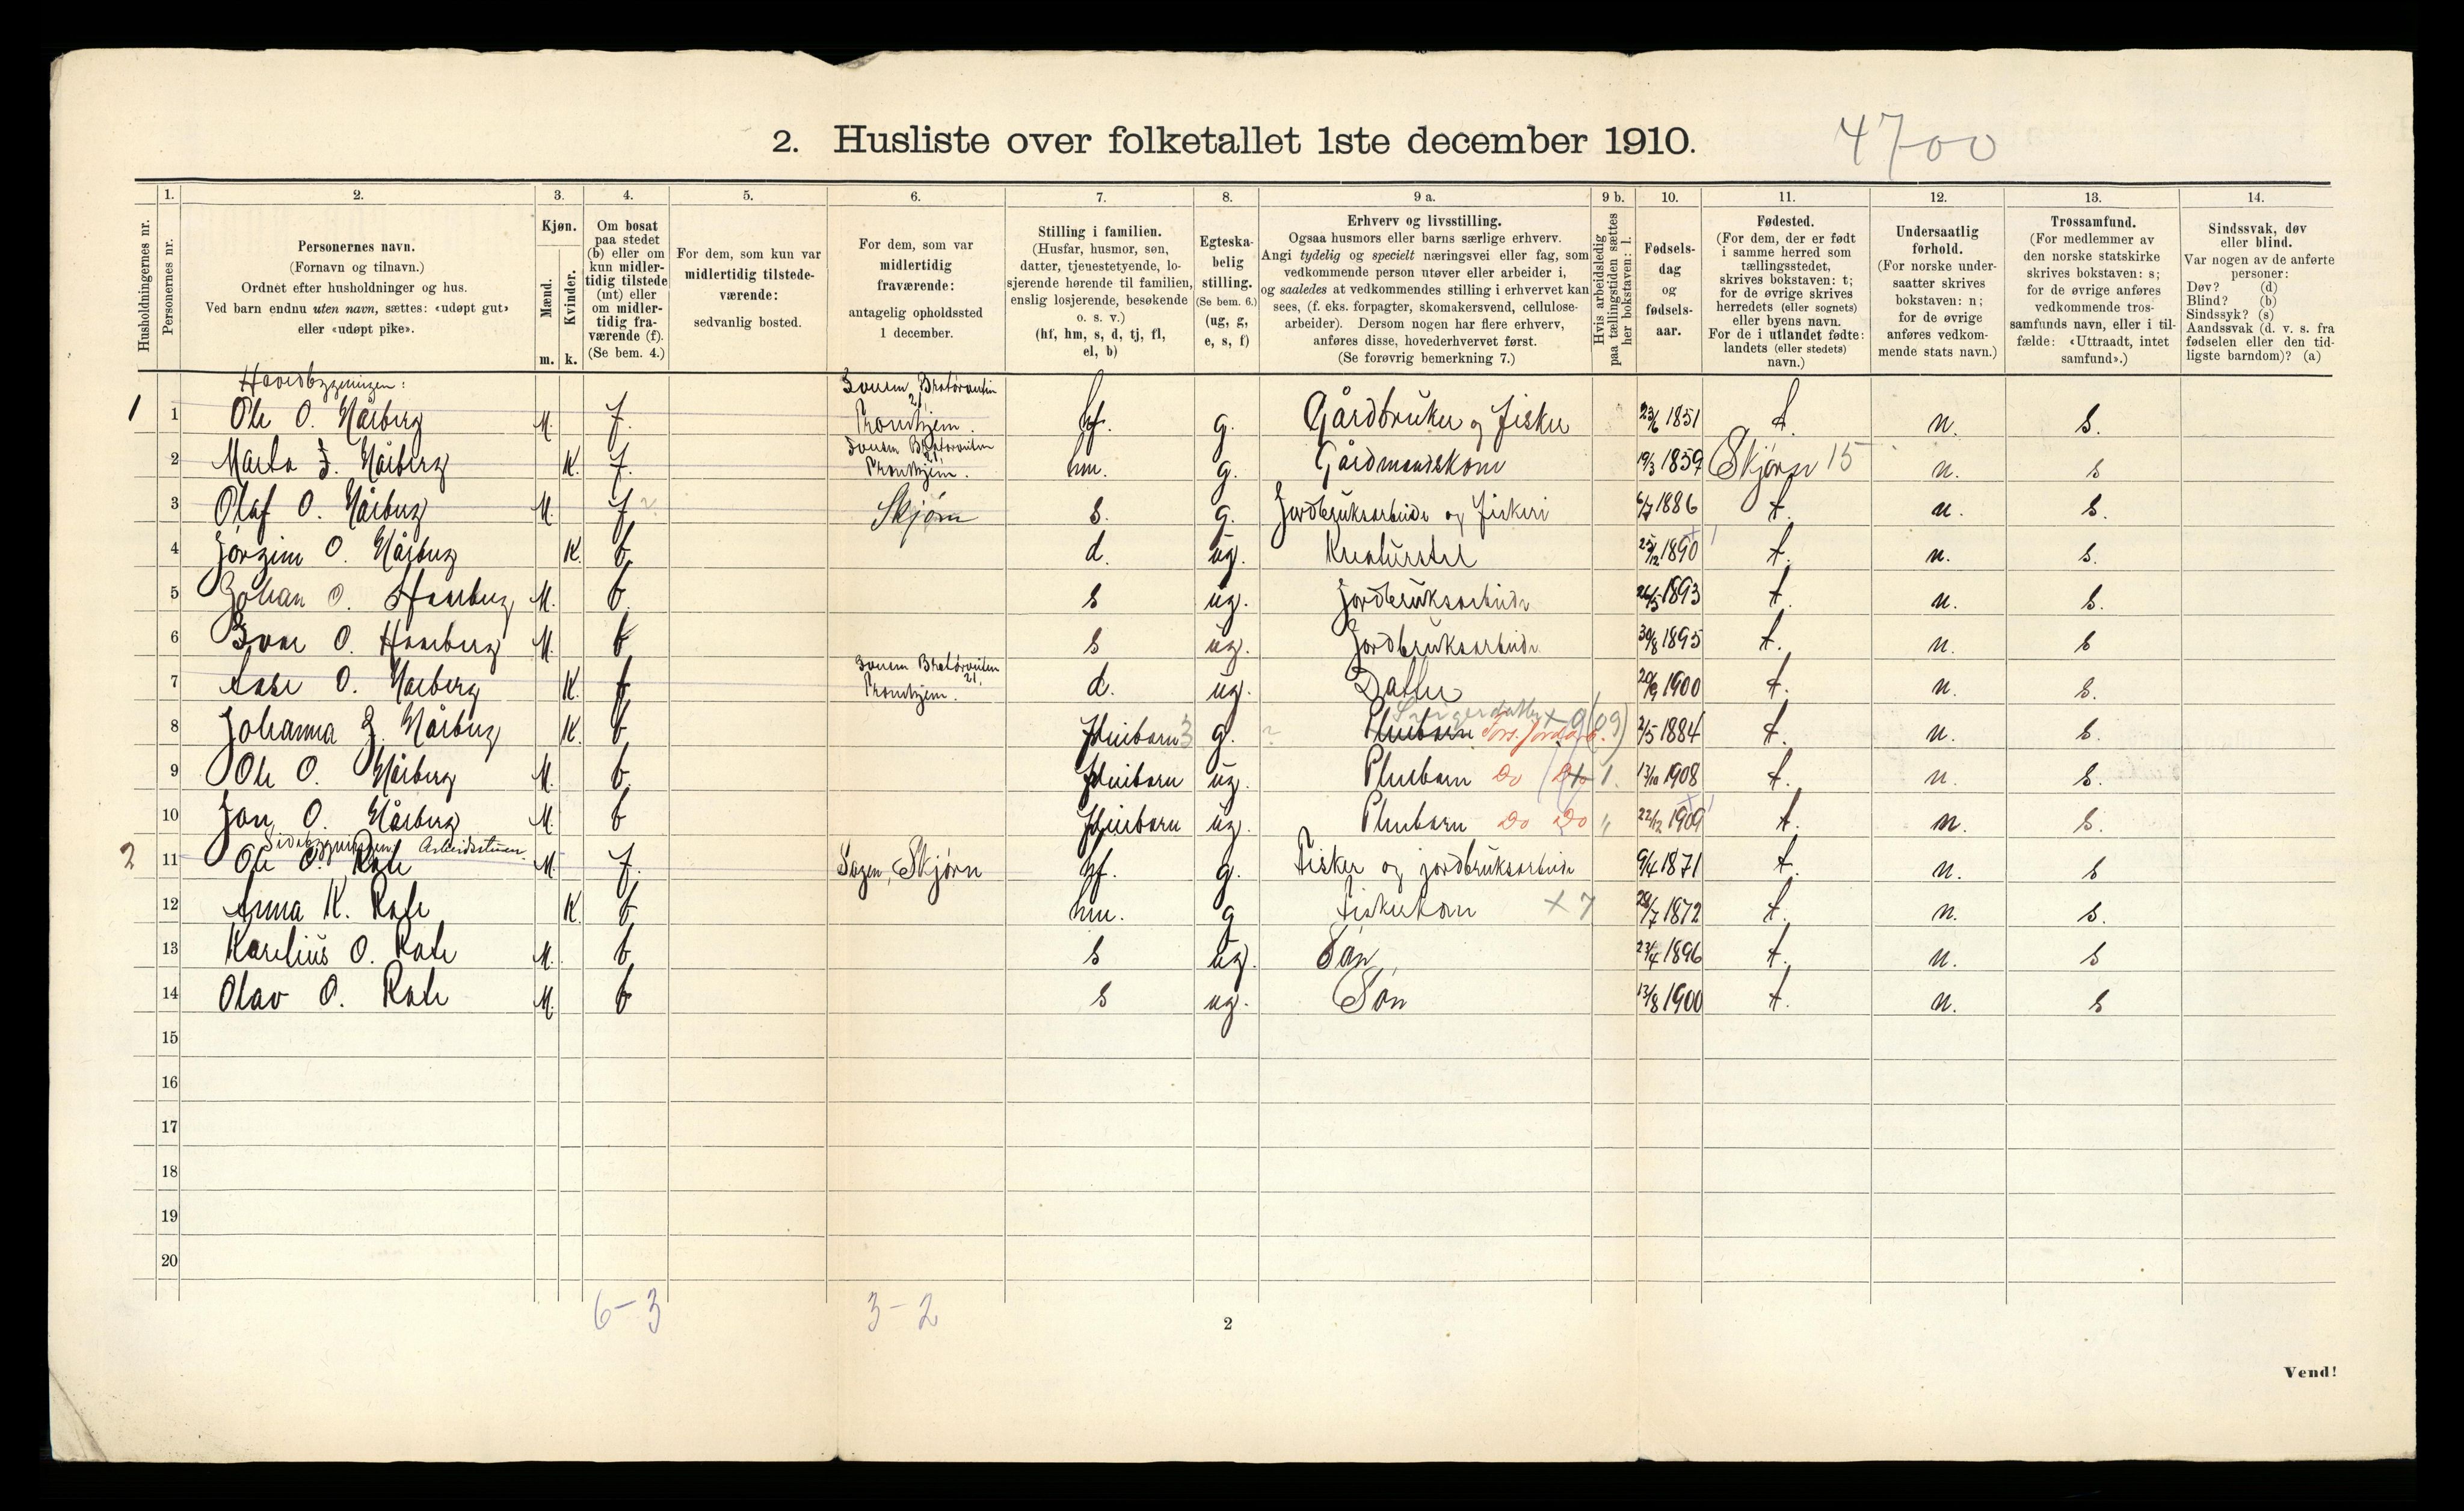 2. Husliste over folketallet 1ste december 1910.
4700
Husholdningernes nr.
1. Personernes nr.
2. Personernes navn. (Fornavn og tilnavn.) Ordnet efter husholdninger og hus. Ved barn endnu uten navn, sættes: «udøpt gut» eller «udøpt pike».
3. Kjøn. Mænd. m. Kvinder. k.
4. Om bosat paa stedet (b) eller om kun midlertidig tilstede (mt) eller om midlertidig fraværende (f). (Se bem. 4.)
5. For dem, som kun var midlertidig tilstedeværende: sedvanlig bosted.
6. For dem, som var midlertidig fraværende: antagelig opholdssted 1 december.
7. Stilling i familien. (Husfar, husmor, søn, datter, tjenestetyende, losjerende hørende til familien, enslig losjerende, besøkende o. s. v.) (hf, hm, s, d, tj, fl, el, b)
8. Egteskabelig stilling. (Se bem. 6.) (ug, g, e, s, f)
9 a. Erhverv og livsstilling. Ogsaa husmors eller barns særlige erhverv. Angi tydelig og specielt næringsvei eller fag, som vedkommende person utøver eller arbeider i, og saaledes at vedkommendes stilling i erhvervet kan sees, (f. eks. forpagter, skomakersvend, cellulosearbeider). Dersom nogen har flere erhverv, anføres disse, hovederhvervet først. (Se forøvrig bemerkning 7.)
9 b. Hvis arbeidsledig paa tællingstiden sættes her bokstaven: l.
10. Fødselsdag og fødselsaar.
11. Fødested. (For dem, der er født i samme herred som tællingsstedet, skrives bokstaven: t; for de øvrige skrives herredets (eller sognets) eller byens navn. For de i utlandet fødte: landets (eller stedets) navn.)
12. Undersaatlig forhold. (For norske undersaatter skrives bokstaven: n; for de øvrige anføres vedkommende stats navn.)
13. Trossamfund. (For medlemmer av den norske statskirke skrives bokstaven: s; for de øvrige anføres vedkommende trossamfunds navn, eller i tilfælde: «Uttraadt, intet samfund».)
14. Sindssvak, døv eller blind. Var nogen av de anførte personer: Døv? (d) Blind? (b) Sindssyk? (s) Aandssvak (d. v. s. fra fødselen eller den tidligste barndom)? (a)
Hovedbygningen:
1 1 Ole O. Hårberg M. f. Bratørveiten 21, Trondhjem. hf. g. Gårdbruker og fisker 23/6 1851 t. n. s.
2 Marta J. Hårberg K. f. Bratørveiten 21, Trondhjem. hm. g. Gårdmandskone 19/3 1859 Skjørn 15 n. s
3 Olaf O. Hårberg M. f ? Skjørn s. g. Jordbruksarbeide og fiskeri 6/7 1886 t. n. s.
4 Jørgine O. Hårberg K. b. d. ug. Kreaturstel 25/12 1890 t. n. s.
5 Johan O. Haarberg M. b. s ug. Jordbruksarbeide 26/5 1893 t. n. s.
6 Ivar O. Haarberg M. b s ug. Jordbruksarbeide 30/8 1895 t. n. s
7 Aase O. Harberg K. f Bratørveiten 21, Trondhjem. d. ug. Datter 20/9 1900 t. n. s.
8 Johanna J. Hårberg K. b Pleiebarn 3 g. ? Pleiebarn Svigerdatter 2/5 1884 t. n. s.
9 Ole O. Hårberg M. b. Pleiebarn ug. Pleiebarn Do Do 13/10 1908 t. n. s.
10 Jon O. Hårberg M. b Pleiebarn ug. Pleiebarn Do Do " 22/12 1909 t. n. s.
Sidebygningen, Arbeidsstuen.
2 11 Ole O. Rate M. f. Skjørn hf. g. Fisker og jordbruksarbeide 9/4 1871 t. n. s
12 Anna K. Rate K. b hm. g Fiskerkone x 7 28/7 1872 t. n. s.
13 Karelius O. Rate M. b s ug. Søn 23/4 1896 t. n. s
14 Olav O. Rate M. b s ug. Søn 13/8 1900 t. n. s
15
16
17
18
19
20
6-3 3-2
2
Vend!